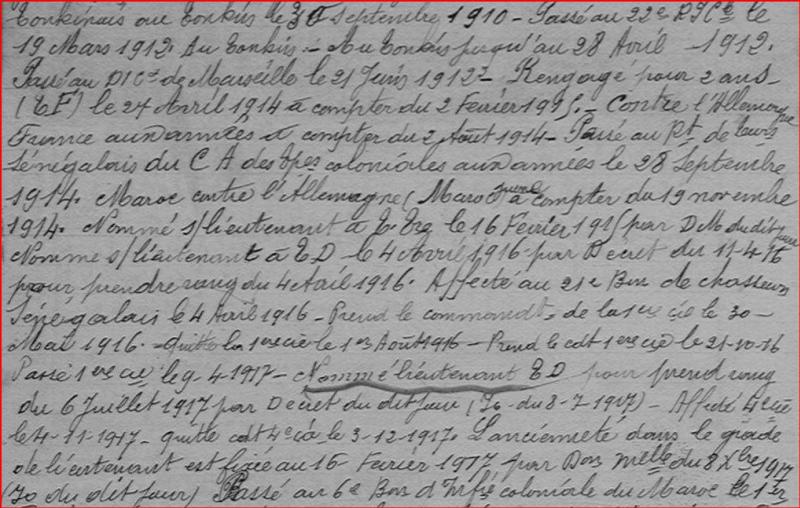 Tonkinois au Tonkin le 30 Septembre 1910 - Passé au 22e RIC le
19 Mars 1912. Au Tonkin - Au Tonkin jusqu'au 28 Avril - 1912.
Passé au DICes de Marseille le 21 Juin 1912 - Rengagé pour 2 ans
(EF) le 24 Avril 1914 à compter du 2 Février 1915. - Contre l'Allemagne
France aux armées à compter du 2 Août 1914 - Passé au Rt de tirrs
Sénégalais du C A des Tpes coloniales aux armées le 28 Septembre
1914. Maroc contre l'Allemagne (Maroc guerre) à compter du 19 novembre
1914. Nommé s/lieutenant à T. Tre le 16 Février 1915 par DM du dit jour
Nommé s/lieutenant à TD le 4 Avril 1916 par Décret du 11-4-16
pour prendre rang du 4 Avril 1916. Affecté au 21e Bon de chasseurs
Sénégalais le 4 Avril 1916 - Prend le commandt de la 1ere cie le 30 -
Mai 1916. - quitte la 1ere cie le 1er Août 1916 - Prend le cdt 1ere cie le 21-10-16
Passé 1ere cie le 9-4-1917 - Nommé lieutenant TD pour prend rang
du 6 Juillet 1917 par Décret du dit jour (Jo du 8-7-1917) - Affecté 4e cie
le 4-11-1917 - quitte cdt 4e cie le 3-12-1917. L'ancienneté dans le grade
de lieutenant est fixée au 16 Février 1917 par Don Melle du 8 Xbre 1917
(Jo du dit jour) Passé au 6e Bon d'Infie coloniale du Maroc le 1er